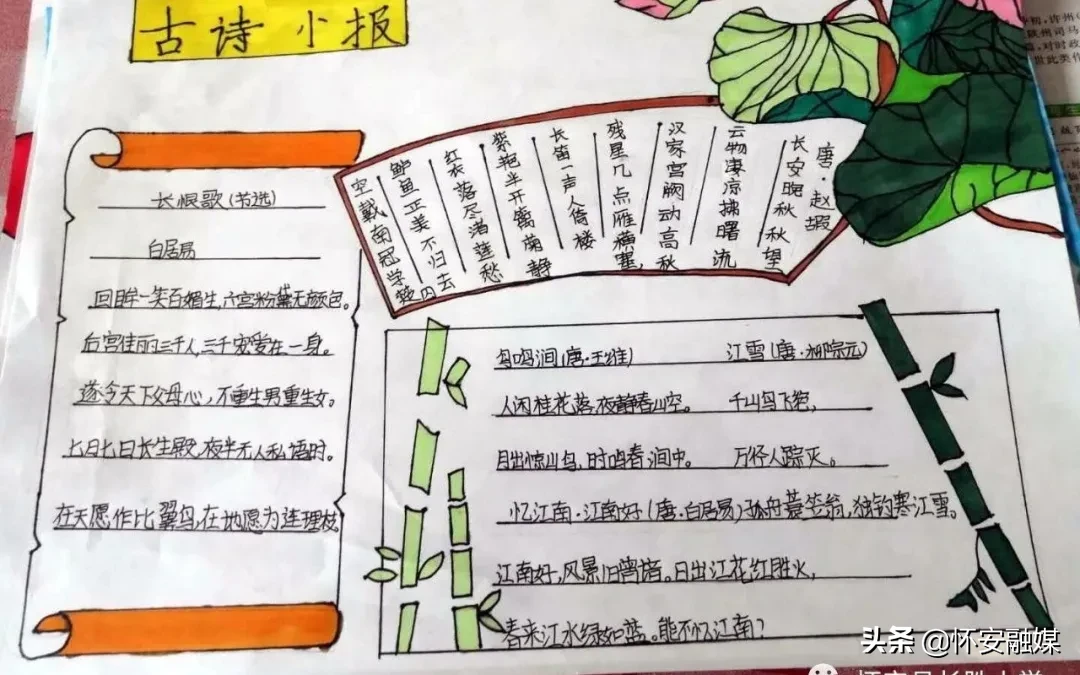 古诗小报
长恨歌(节选)
白居易
回眸一笑百媚生,六宫粉黛无颜色。
后宫佳丽三千人,三千宠爱在一身。
遂令天下父母心,不重生男重生女。
七月七日长生殿,夜半无人私语时。
在天愿作比翼鸟,在地愿为连理枝。
唐·赵嘏
长安晚秋 秋望
云物凄凉拂曙流
汉家宫阙动高秋
残星几点雁横塞,
长笛一声人倚楼
紫艳半开篱菊静
红衣落尽渚莲愁
鲈鱼正美不归去
空戴南冠学楚囚
鸟鸣涧(唐·王维) 江雪(唐·柳宗元)
人闲桂花落,夜静春山空。 千山鸟飞绝,
月出惊山鸟,时鸣春涧中。 万径人踪灭。
忆江南·江南好(唐·白居易)孤舟蓑笠翁,独钓寒江雪。
江南好,风景旧曾谙。日出江花红胜火,
春来江水绿如蓝。能不忆江南?
头条 @怀安融媒